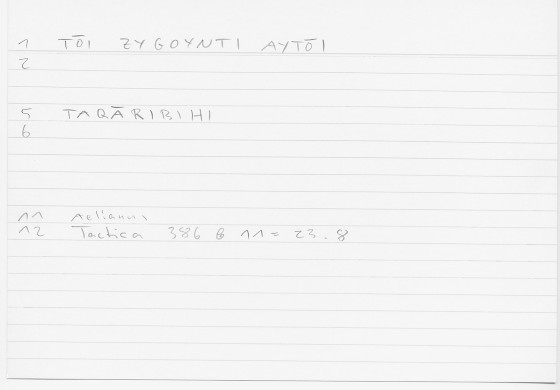 1 TŌI ZYGOYNTI AYTŌI
2
5 TAQĀRIBIHI
6
11 Aelianus
12 Tactica 386 B 11 = 23.8